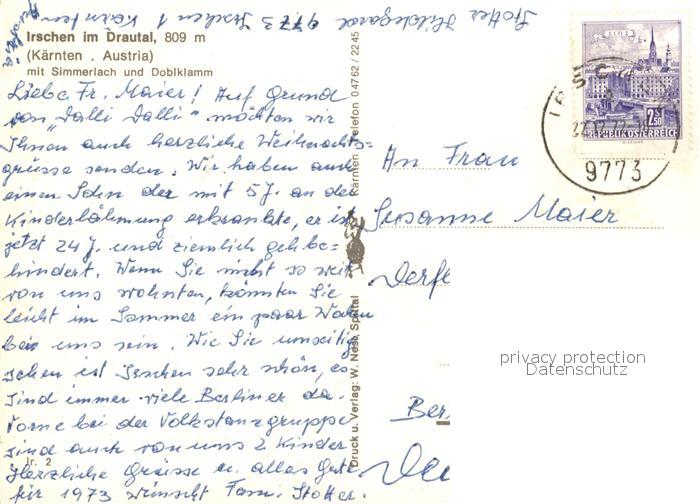 Stotter Hildegard 9773 Irschen 1 Kärnten
Irschen im Drautal, 809 m
(Kärnten . Austria)
mit Simmerlach und Doblklamm
Liebe Fr. Maier! Auf Grund
von "Dalli Dalli" möchten wir
Ihnen auch herzliche Weihnachts-
grüsse senden. Wir haben auch
einen Sohn der mit 5 J. an der
Kinderlähmung erkrankte, er ist
jetzt 24 J. und ziemlich gehbe-
hindert. Wenn Sie nicht so weit
von uns wohnten, könnten Sie
leicht im Sommer ein paar Wochen
bei uns sein. Wie Sie umseitig
sehen ist Irschen sehr schön, es
sind immer viele Berliner da.
Vorne bei der Volkstanzgruppe
sind auch von uns 2 Kinder
Herzliche Grüsse u. alles Gute
für 1973 wünscht Fam. Stotter.
Ir. 2
Druck u. Verlag: W. Neek, Spittal
Kärnten Telefon 0 47 62 / 22 45
LINZ
2.50
REPUBLIK ÖSTERREICH
IRSC
22.12.72
9773
An Frau
Susanne Maier
Derfl
Ber
privacy protection
Datenschutz